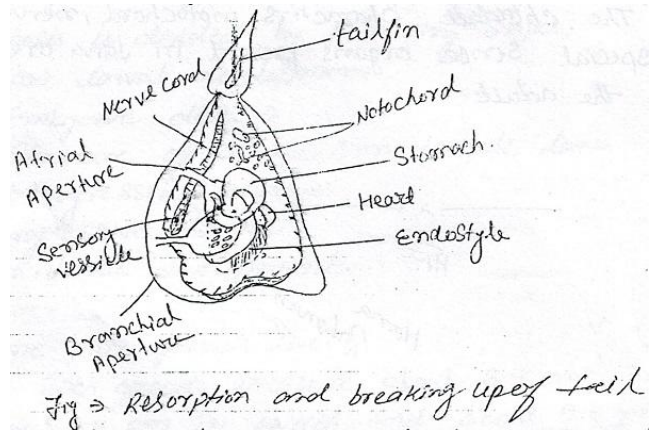 tailfin
Nerve cord
Notochord
Atrial
Aperture
Stomach
Heart
Sensory
vessicle
Endostyle
Branchial
Aperture
Fig → Resorption and breaking up of tail